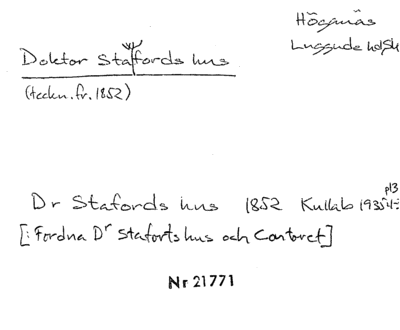 Höganäs
Luggude hd Sk
Doktor Staffords hus
(teckn. fr. 1852)
Dr Stafords hus 1852 Kullab 1935
[: Fordna Dr Staforts hus och Contoret]
Nr 21771